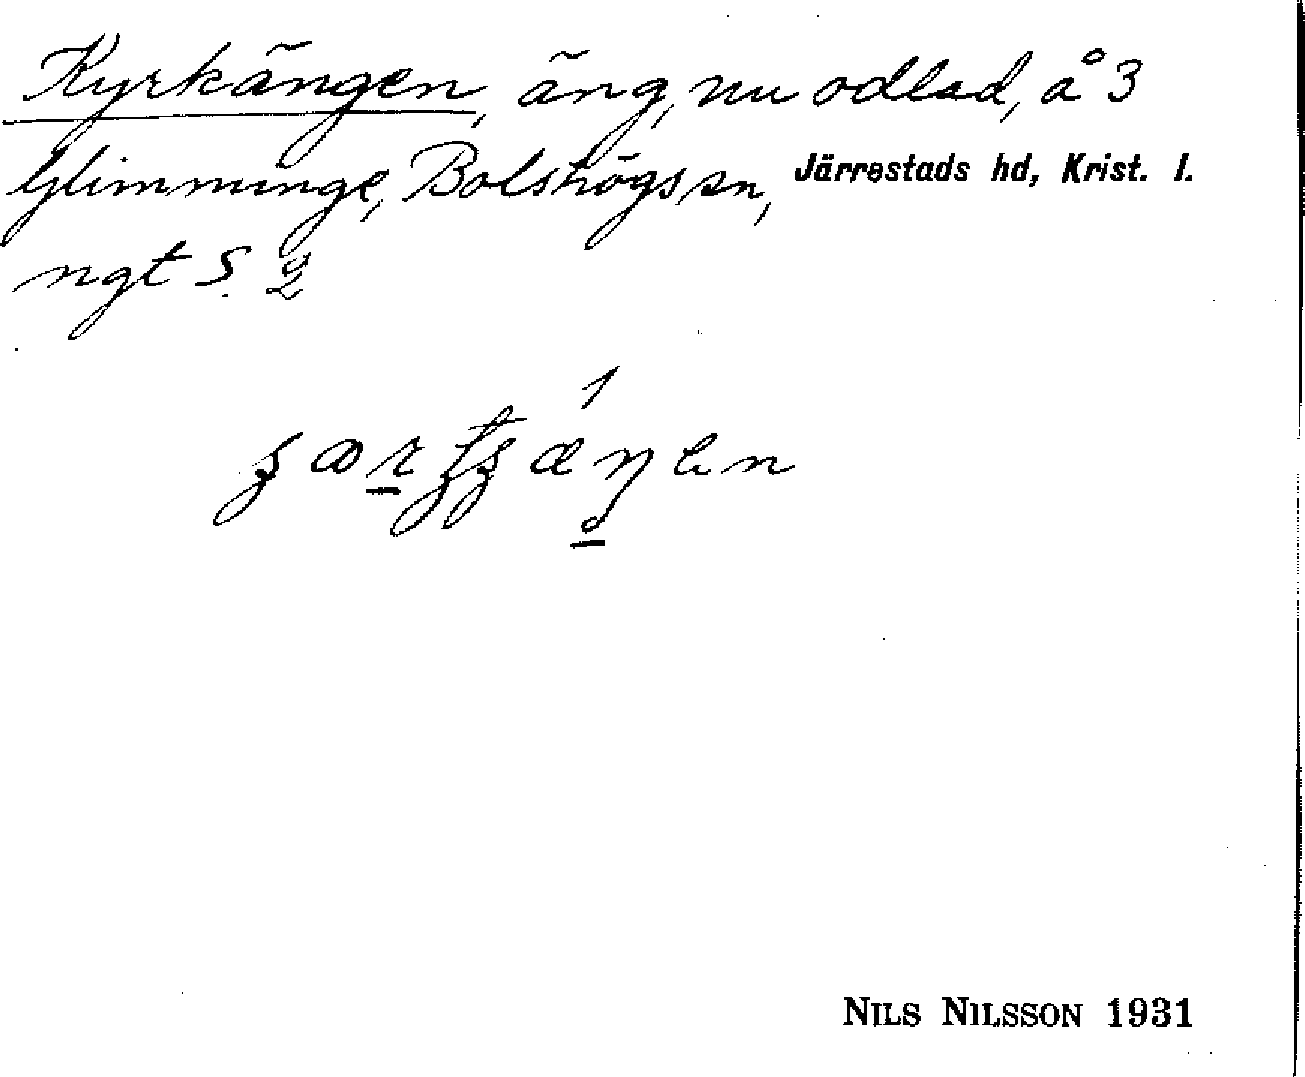 Kyrkängen, äng, nu odlad, å 3
Glimminge, Bolshögs sn, Järrestads hd, Krist. l.
ngt S. 2
NILS NILSSON 1931